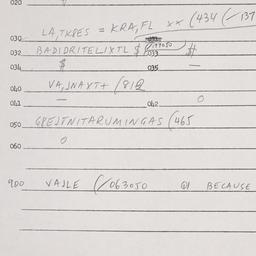 020
030 LA,TKPES = KRA,FL xx (434 (/137
032 BADIDRITELIXTL $ 033 #
034 $ 035 —
040 VA,SNAYT+ /81
041 — 042 0
050 GPEJTNITARUMINGAS (465
060 0
900 VAJLE (/063050 BECAUSE